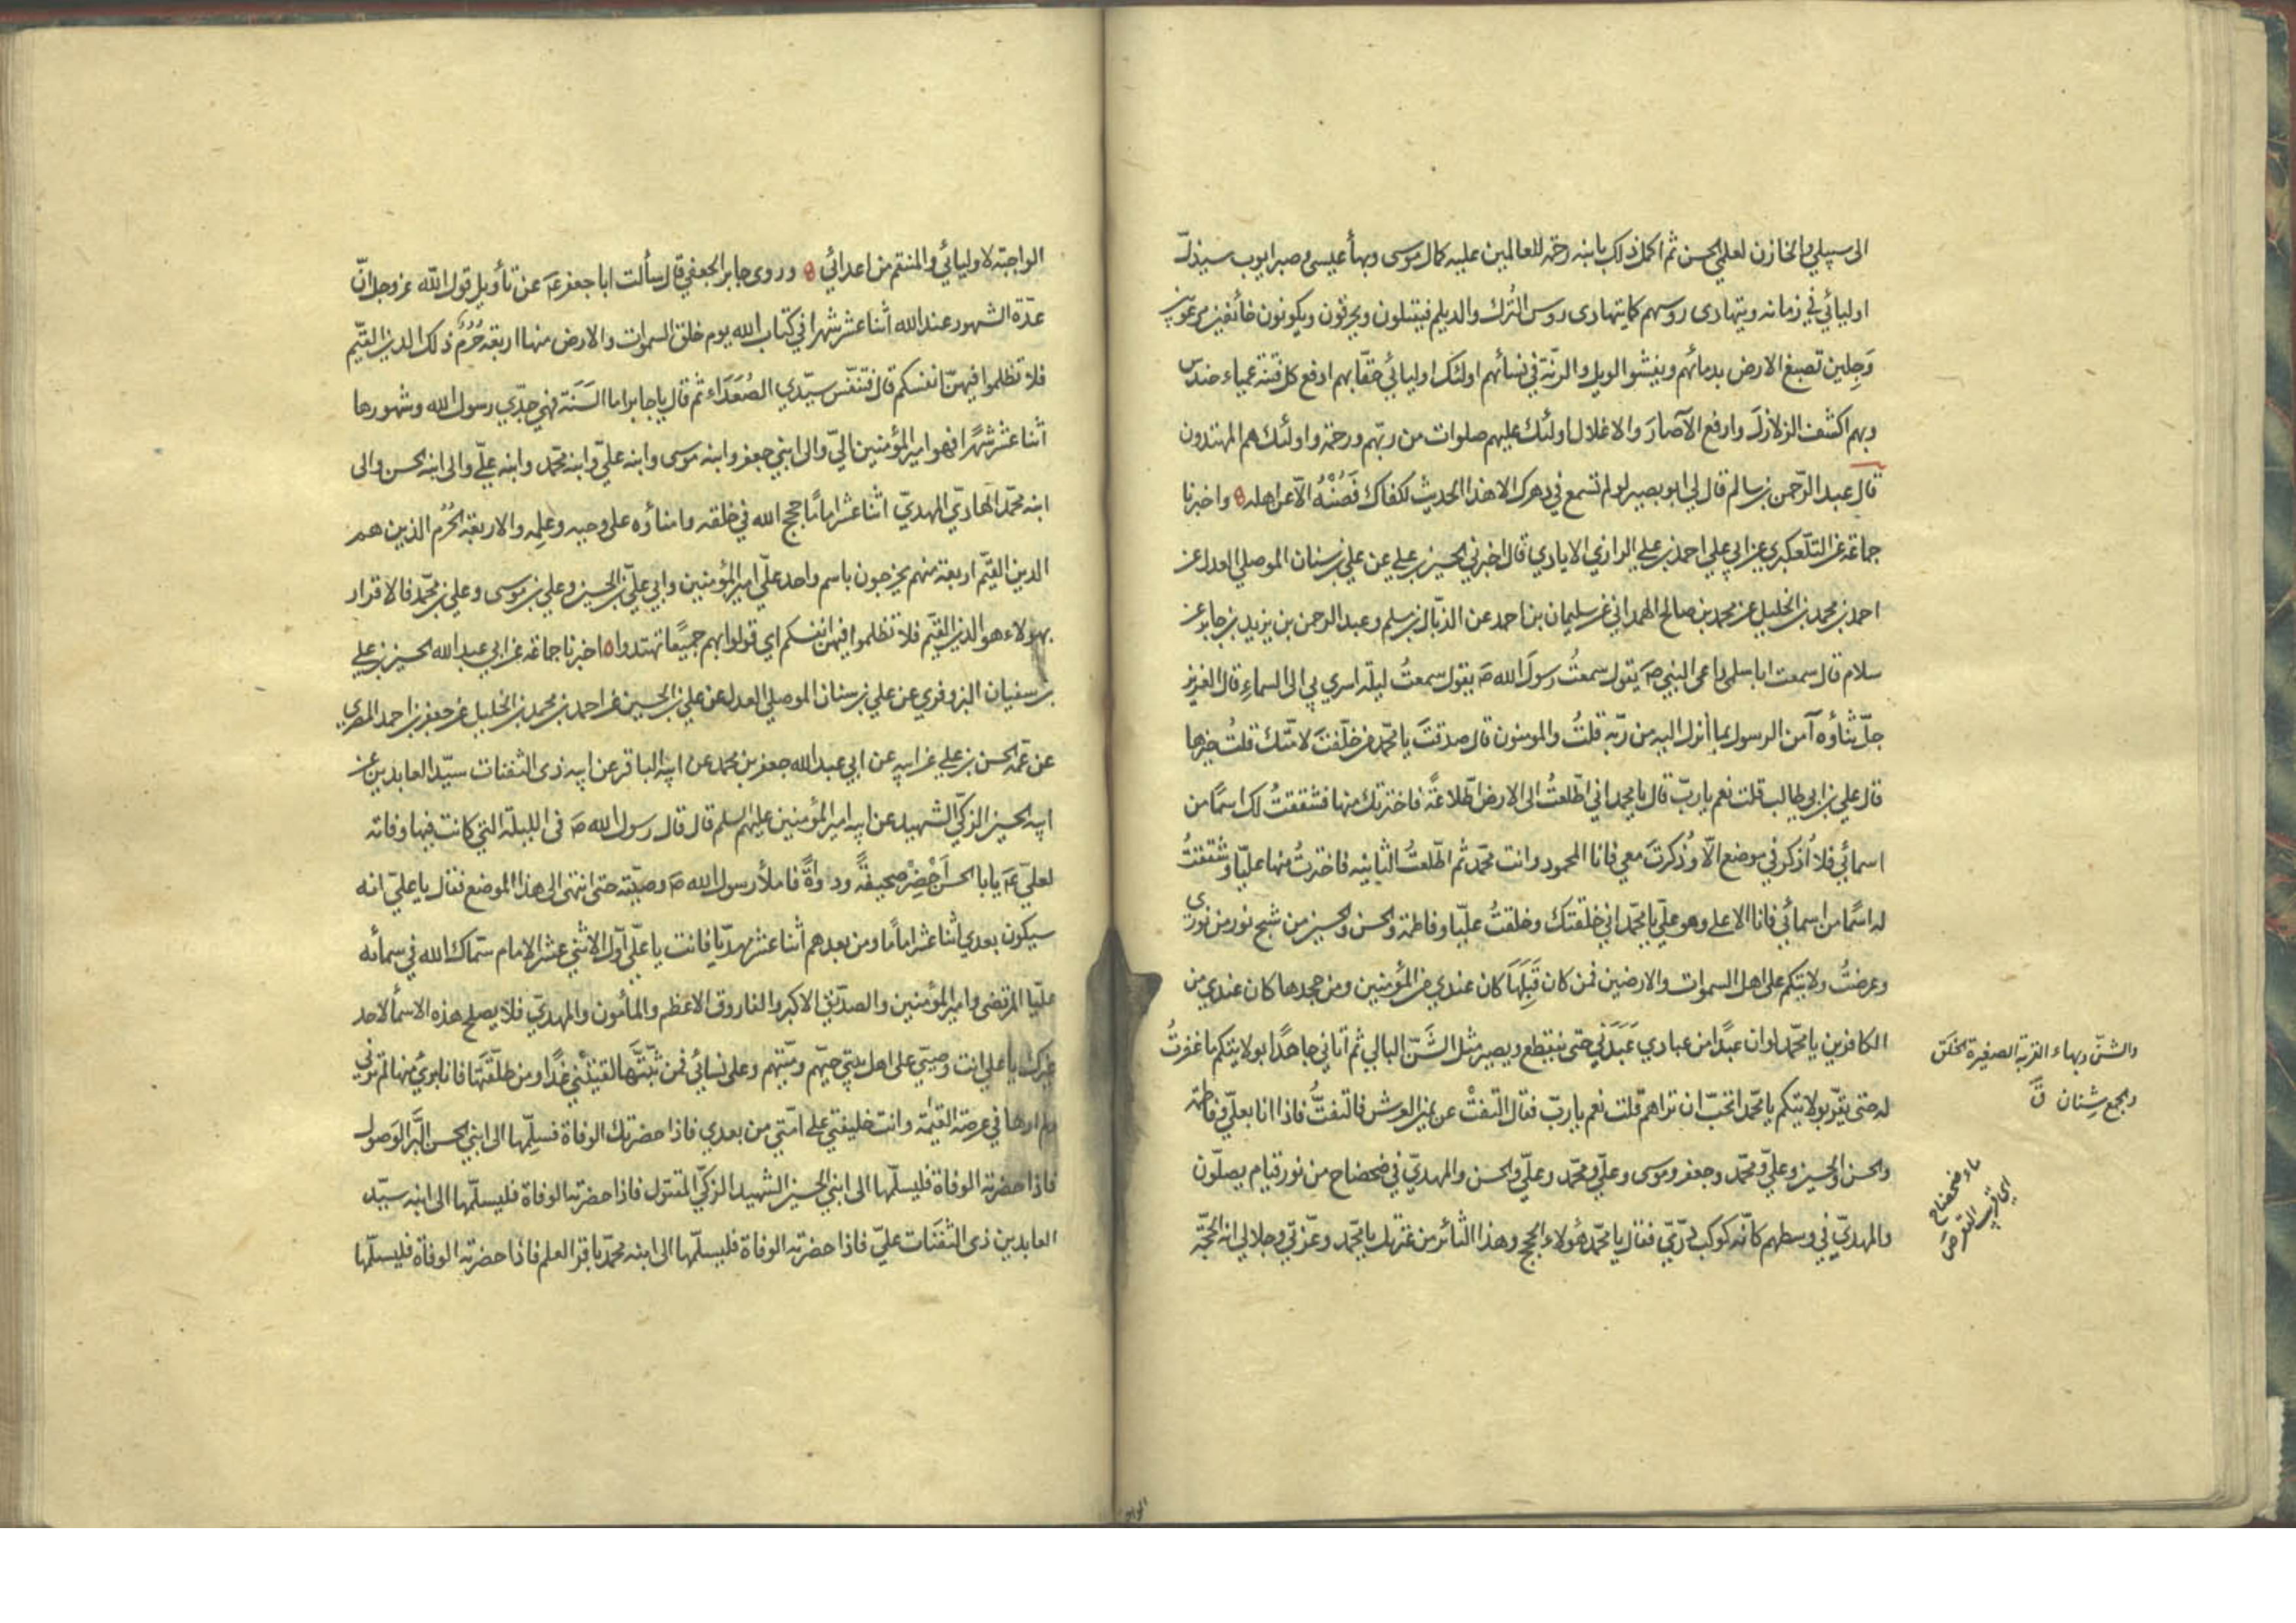 الى سبيلي والخازن لعلمي الحسن ثم اكمل ذلك بابنه رحمة للعالمين عليه كمال موسى وبهأ عيسى وصبر ايوب سيذلّ
اوليائي في زمانه ويتهادى روسهم كما يتهادى روس التُرك والديلم فيقتلون ويحرقون ويكونون خائفين مرعوبين
وَجِلين تصبغ الارض بدمائهم ويفشو الويل والرنّة في نسائهم اولئك اوليائي حقّا بهم ادفع كل فتنة عمياء حندس
وبهم اكشف الزلازل وارفع الآصارَ والاغلال اولئك عليهم صلوات من ربّهم ورحمة واولئك هم المهتدون
قال عبد الرّحمن بن سالم قال لي ابو بصير لو لم تسمع في دهرك الا هذا الحديث لكفاك فَصُنْهُ الّا عن اهله ۞ واخبرنا
جماعة عن التلّعكبري عن ابي علي احمد بن علي الرازي الايادي قال اخبرني الحسين بن علي عن علي بن سنان الموصلي العدل عن
احمد بن محمد بن الخليل عن محمد بن صالح الهمداني عن سليمان بن احمد عن الذبّال بن مسلم وعبد الرحمن بن يزيد بن جابر عن
سلام قال سمعت ابا سلمى راعى النبي صَ يقول سمعتُ رسولَ الله صَ يقول سمعتُ ليلة اسري بي الى السماءِ قال العزيز
جلّ ثناؤه آمن الرسول بما أُنزل اليه من ربّه قلتُ والمومنون قال صدقتَ يا محمّد من خلّفتَ لامّتك قلتُ خيرها
قال علي بن ابي طالب قلت نعم يا ربّ قال يا محمد اني اطّلعتُ الى الارض اطّلاعةً فاخترتك منها فشققتُ لك اسمًا من
اسمائي فلا اُذكر في موضع الّا وذُكرتَ معي فانا المحمود وانت محمّد ثم اطّلعتُ الثانية فاخترتُ منها عليّا وشققتُ
له اسمًا من اسمائي فانا الاعلى وهو علي يا محمّد اني خلقتك وخلقتُ عليّا وفاطمة والحسن والحسين من شبح نور من نوري
وعرضتُ ولايتكم على اهل السموات والارضين فمن كان قَبِلَهَا كان عندي من المؤمنين ومن جحدها كان عندي من
الكافرين يا محمّد لو ان عبدًا من عبادي عَبَدَني حتى ينقطع ويصير مثل الشَنّ البالي ثم أتاني جاحدًا بولايتكم ما غفرتُ
له حتى يقرّ بولايتكم يا محمّد اتحبّ ان تراهم قلت نعم يا ربّ فقال التفتْ عن يمين العرش فالتفتُّ فاذا انا بعليّ وفاطمة
والحسن والحسين وعليّ ومحمّد وجعفر وموسى وعليّ ومحمّد وعليّ والحسن والمهديّ في ضحضاح من نور قيام يصلّون
والمهديّ في وسطهم كانّه كوكب درّيّ فقال يا محمّد هؤلاء الحجج وهذا الثائر من عترتك يا محمّد وعزّتي وجلالي انه الحجّة
والشنّ وبهاء القربة الصغيرة الخلَق
والجمع شِنان قَ
ماء ضحضاح
اي قريب القعر ص
الواجبة لاوليائي والمنتقم من اعدائي ۞ وروى جابر الجعفي قال سألت ابا جعفر عَ عن تأويل قول الله عزوجل انّ
عدّة الشهور عند الله اثنا عشر شهرا في كتاب الله يوم خلق السموات والارض منها اربعة حُرُمٌ ذلك الدين القيّم
فلا تظلموا فيهنّ انفسكم قال فتنفّس سيّدي الصُعَدَاء ثم قال يا جابر اما السَنَة فهي جدّي رسول الله وشهورها
اثنا عشر شهرًا فهو امير المؤمنين اليّ والى ابني جعفر وابنه موسى وابنه عليّ وابنه محمّد وابنه عليّ والى ابنه الحسن والى
ابنه محمّد الهاديّ المهديّ اثنا عشر امامًا حجج الله في خلقه وامناؤه على وحيه وعِلمِه والاربعة الحُرُم الذين هم
الدين القيّم اربعة منهم يخرجون باسم واحد عليّ امير المؤمنين وابي عليّ بن الحسين وعلي بن موسى وعلي بن محمّد فالاقرار
بهولاء هو الدين القيّم فلا تظلموا فيهن انفسكم اي قولوا بهم جميعًا تهتدوا ۞ اخبرنا جماعة عن ابي عبد الله الحسين بن علي
بن سفيان البزوفري عن علي بن سنان الموصلي العدل عن علي بن الحسين عن احمد بن محمد بن الخليل عن جعفر بن احمد المصري
عن عمّه الحسن بن علي عن ابيه عن ابي عبد الله جعفر بن محمد عن ابيه الباقر عن ابيه ذى الثفنات سيّد العابدين عن
ابيه الحسين الزكيّ الشهيد عن ابيه امير المؤمنين عليهم السلم قال قال رسول الله صَ في الليلة التي كانت فيها وفاته
لعليّ عَ يابا الحسن أَحْضِرْ صحيفةً ودواةً فاملأ رسول الله صَ وصيّته حتى انتهى الى هذا الموضع فقال يا عليّ انه
سيكون بعدي اثنا عشر اماما ومن بعدهم اثنا عشر مهديّا فانت يا عليّ اوّل الاثني عشر الامام سمّاك الله في سمائه
عليّا المرتضى وامير المؤمنين والصدّيق الاكبر والفاروق الاعظم والمأمون والمهديّ فلا يصلح هذه الاسمأ لاحد
غيرك يا علي انت وصيّي على اهل بيتي حيّهم وميّتهم وعلى نسائي فمن ثبّتَّها لقيَتْني غدًا ومن طلّقتَها فانا بريٌ منها لم ترني
ولم ارها في عرصة القيمة وانت خليفتي على امّتي من بعدي فاذا حضرتك الوفاة فسلّمها الى ابني الحسن البَرّ الوَصول
فاذا حضرته الوفاة فليسلّمها الى ابني الحسين الشهيد الزكيّ المقتول فاذا حضرته الوفاة فليسلّمها الى ابنه سيّد
العابدين ذى الثفَنَات عليّ فاذا حضرته الوفاة فليسلّمها الى ابنه محمّد باقر العلم فاذا حضرته الوفاة فليسلّمها